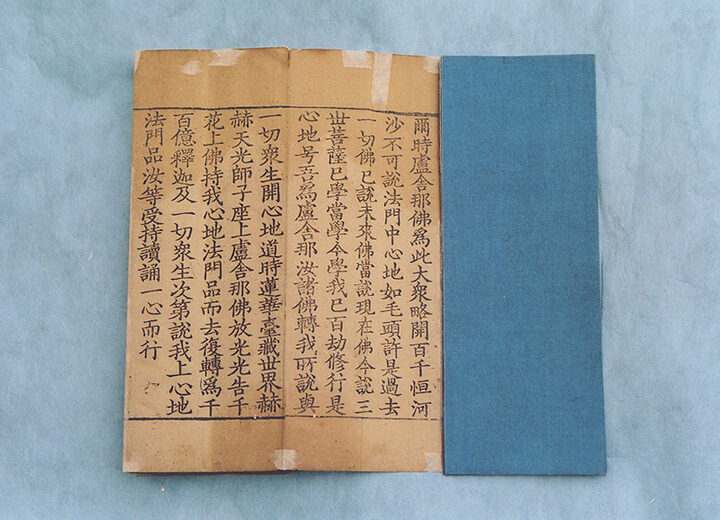 爾時盧舍那佛爲此大衆略開百千恒河
沙不可說法門中心地如毛頭許是過去
一切佛已說未來佛當說現在佛今說三
世菩薩已學當學今學我已百劫修行是
心地号吾爲盧舍那汝諸佛轉我所說與
一切衆生開心地道時蓮華臺藏世界赫
赫天光師子座上盧舍那佛放光光告千
花上佛持我心地法門品而去復轉爲千
百億釋迦及一切衆生次第說我上心地
法門品汝等受持讀誦一心而行